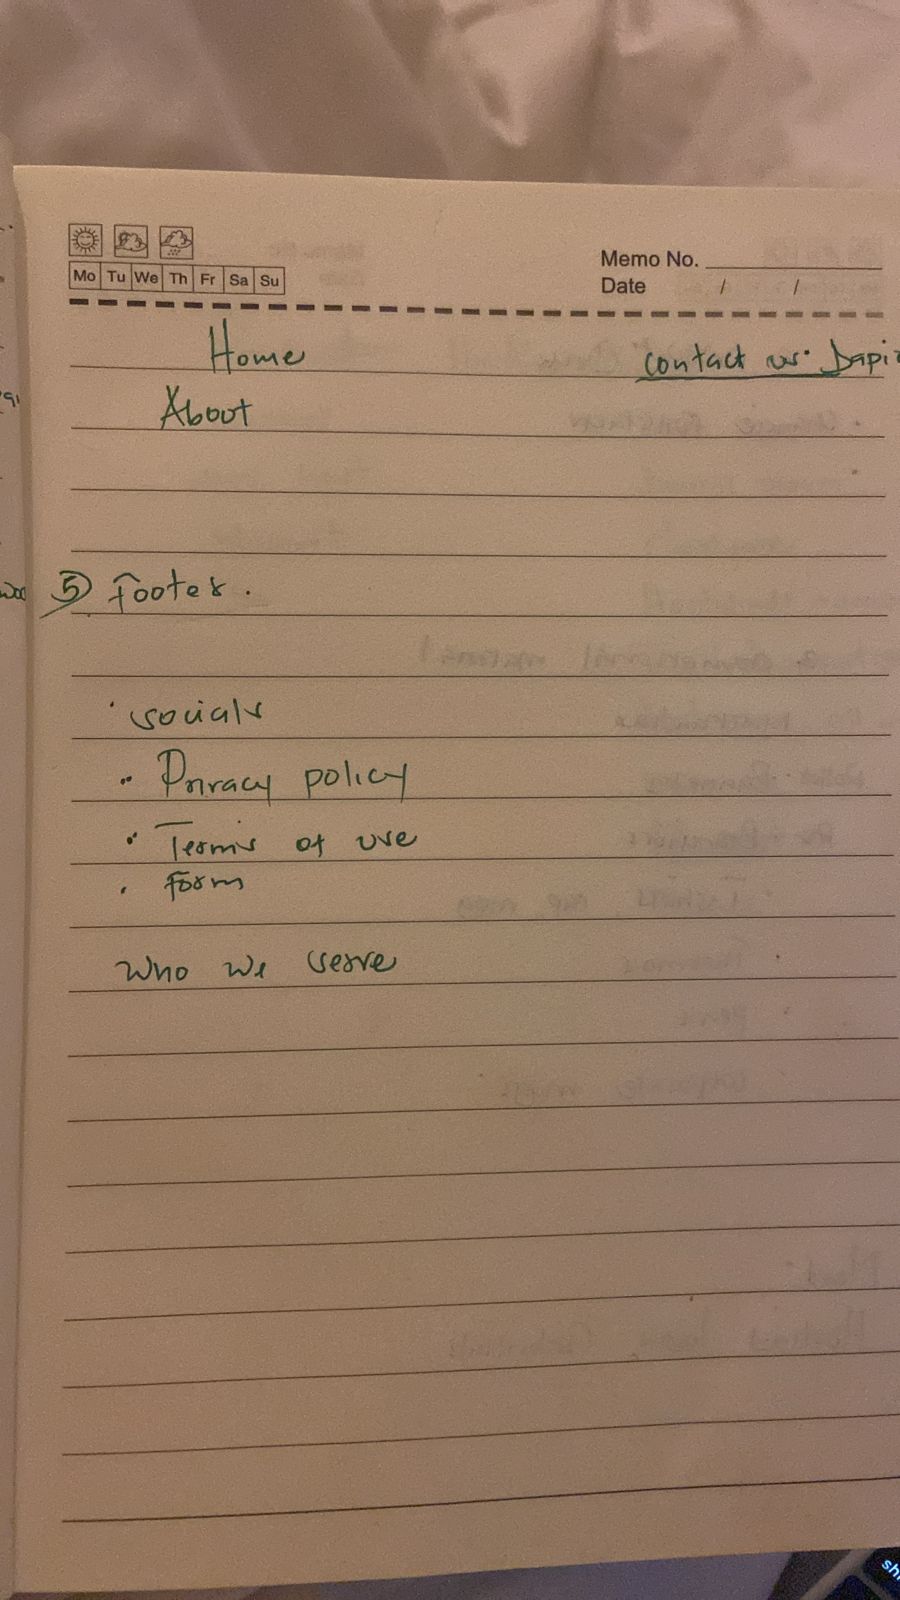 Mo Tu We Th Fr Sa Su
Memo No.
Date / /
Home
contact us.
About
5 Footer.
· socials
· Privacy policy
· Terms of use
· Form
Who we serve